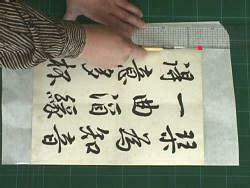 琴為知音
一曲酒緣
得意多杯